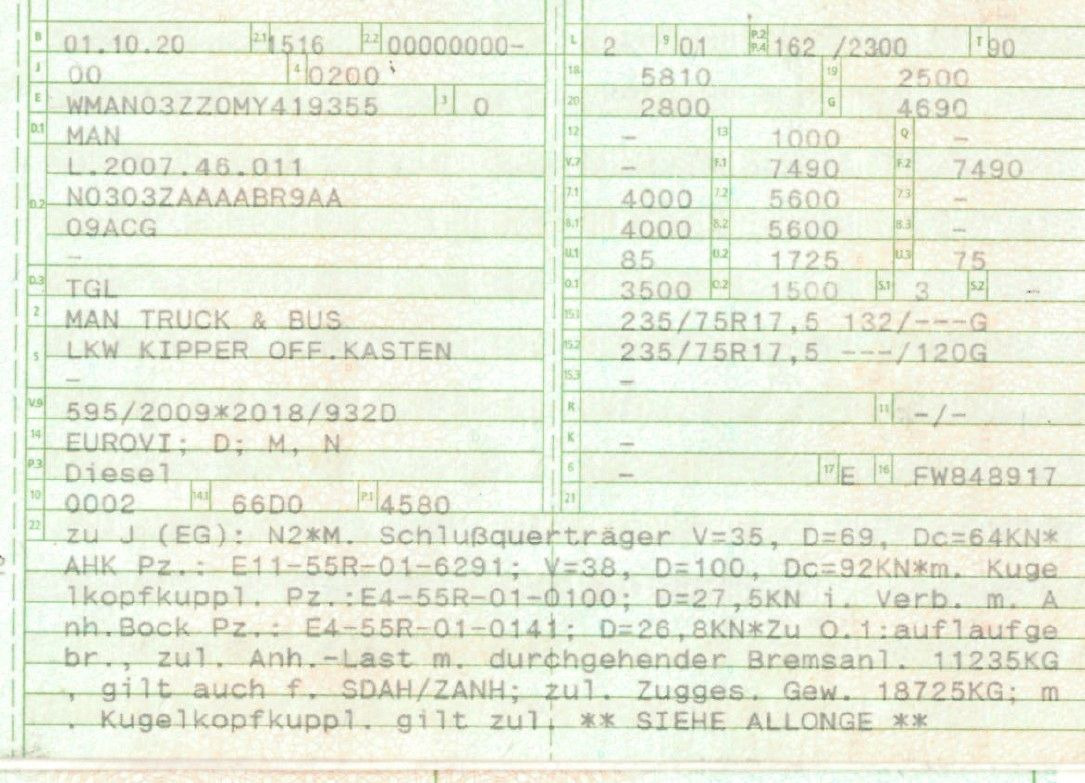 B 01.10.20 2.1 1516 2.2 00000000-
J 00 4 0200
E WMAN03ZZ0MY419355 3 0
D.1 MAN
L.2007.46.011
D.2 N0303ZAAAABR9AA
09ACG
-
D.3 TGL
2 MAN TRUCK & BUS
5 LKW KIPPER OFF.KASTEN
-
V.9 595/2009*2018/932D
14 EUROVI; D; M, N
P.3 Diesel
10 0002 14.1 66D0 P.1 4580
L 2 9 01 P.2 P.4 162 /2300 T 90
18 5810 19 2500
20 2800 G 4690
12 - 13 1000 Q -
V.7 - F.1 7490 F.2 7490
7.1 4000 7.2 5600 7.3 -
8.1 4000 8.2 5600 8.3 -
U.1 85 U.2 1725 U.3 75
O.1 3500 O.2 1500 S.1 3 S.2 -
15.1 235/75R17,5 132/---G
15.2 235/75R17,5 ---/120G
15.3 -
R 11 -/-
K -
6 - 17 E 16 FW848917
21
22 zu J (EG): N2*M. Schlußquerträger V=35, D=69, Dc=64KN*
AHK Pz.: E11-55R-01-6291; V=38, D=100, Dc=92KN*m. Kuge
lkopfkuppl. Pz.:E4-55R-01-0100; D=27,5KN i. Verb. m. A
nh.Bock Pz.: E4-55R-01-0141; D=26,8KN*Zu O.1:auflaufge
br., zul. Anh.-Last m. durchgehender Bremsanl. 11235KG
, gilt auch f. SDAH/ZANH; zul. Zugges. Gew. 18725KG; m
. Kugelkopfkuppl. gilt zul. ** SIEHE ALLONGE **